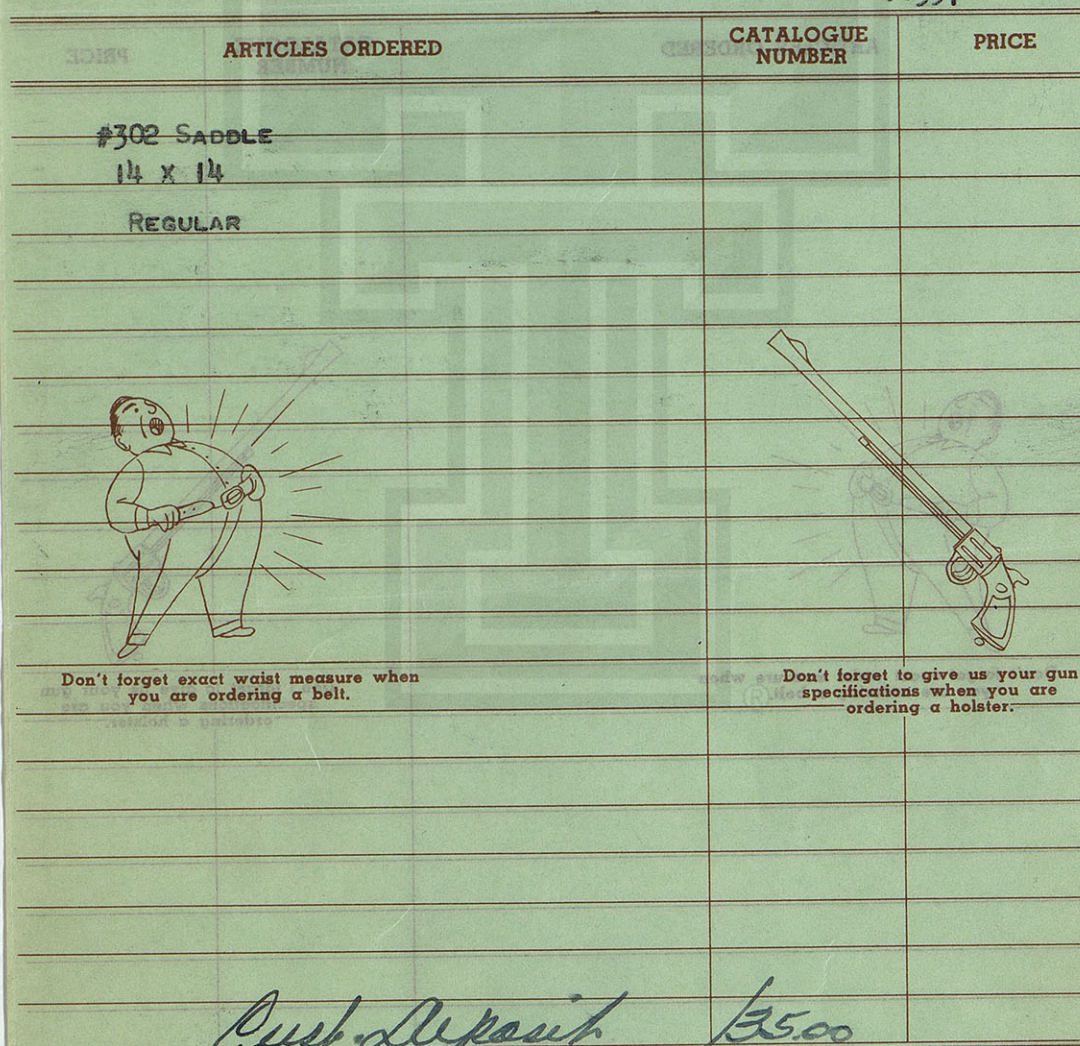 ARTICLES ORDERED
CATALOGUE
NUMBER
PRICE
#302 SADDLE
14 X 14
REGULAR
Don't forget exact waist measure when
you are ordering a belt.
Don't forget to give us your gun
specifications when you are
ordering a holster.
Cust. Deposit 135.00